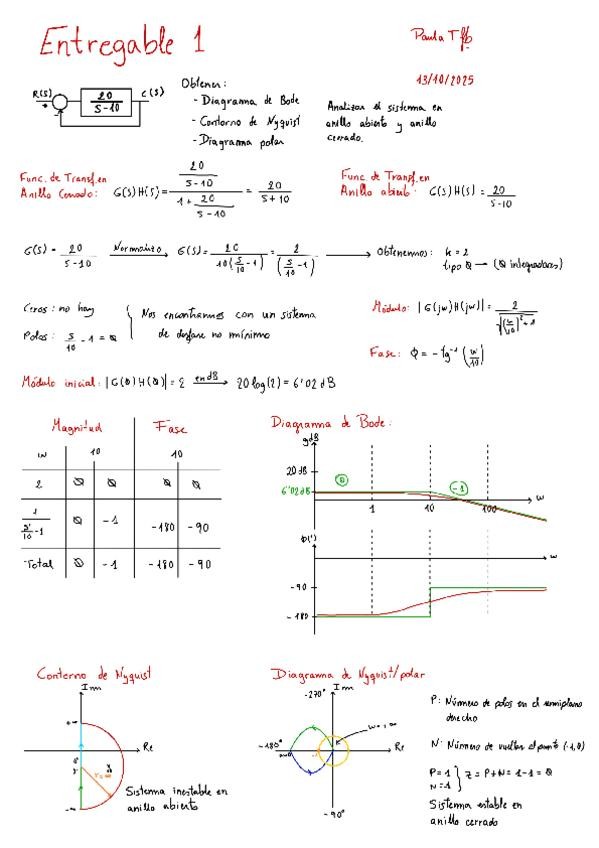 Entregable 1
Paula T
13/10/2025
R(s) 20/(s-10) C(s)
Obtener:
- Diagrama de Bode
- Contorno de Nyquist
- Diagrama polar
Analizar el sistema en
anillo abierto y anillo
cerrado.
Func. de Transf. en
Anillo Cerrado: G(s)H(s) = (20/(s-10))/(1 + 20/(s-10)) = 20/(s+10)
Func. de Transf. en
Anillo abierto: G(s)H(s) = 20/(s-10)
G(s) = 20/(s-10) Normalizo → G(s) = 20/(10(s/10 -1)) = 2/(s/10 -1) → Obtenemos: k = 2
tipo 0 → (0 integradores)
Ceros: no hay
Polos: s/10 - 1 = 0
Nos encontramos con un sistema
de desfase no mínimo
Módulo: |G(jw)H(jw)| = 2/√((w/10)² + 1)
Fase: Φ = - tg⁻¹ (w/10)
Módulo inicial: |G(0)H(0)| = 2 en dB → 20 log(2) = 6'02 dB
Magnitud Fase
w 10 10
2 0 0 0 0
1/(s/10 -1) 0 -1 -180 -90
Total 0 -1 -180 -90
Diagrama de Bode:
gdB
20 dB
6'02 dB
0 -1
1 10 100 w
Φ(°)
w
- 90
- 180
Contorno de Nyquist
Im
Re
Sistema inestable en
anillo abierto
Diagrama de Nyquist/polar
-270° Im
w = +∞
-180° Re
-90°
P: Número de polos en el semiplano
derecho
N: Número de vueltas al punto (-1,0)
P = 1
N = -1
Z = P + N = 1 - 1 = 0
Sistema estable en
anillo cerrado